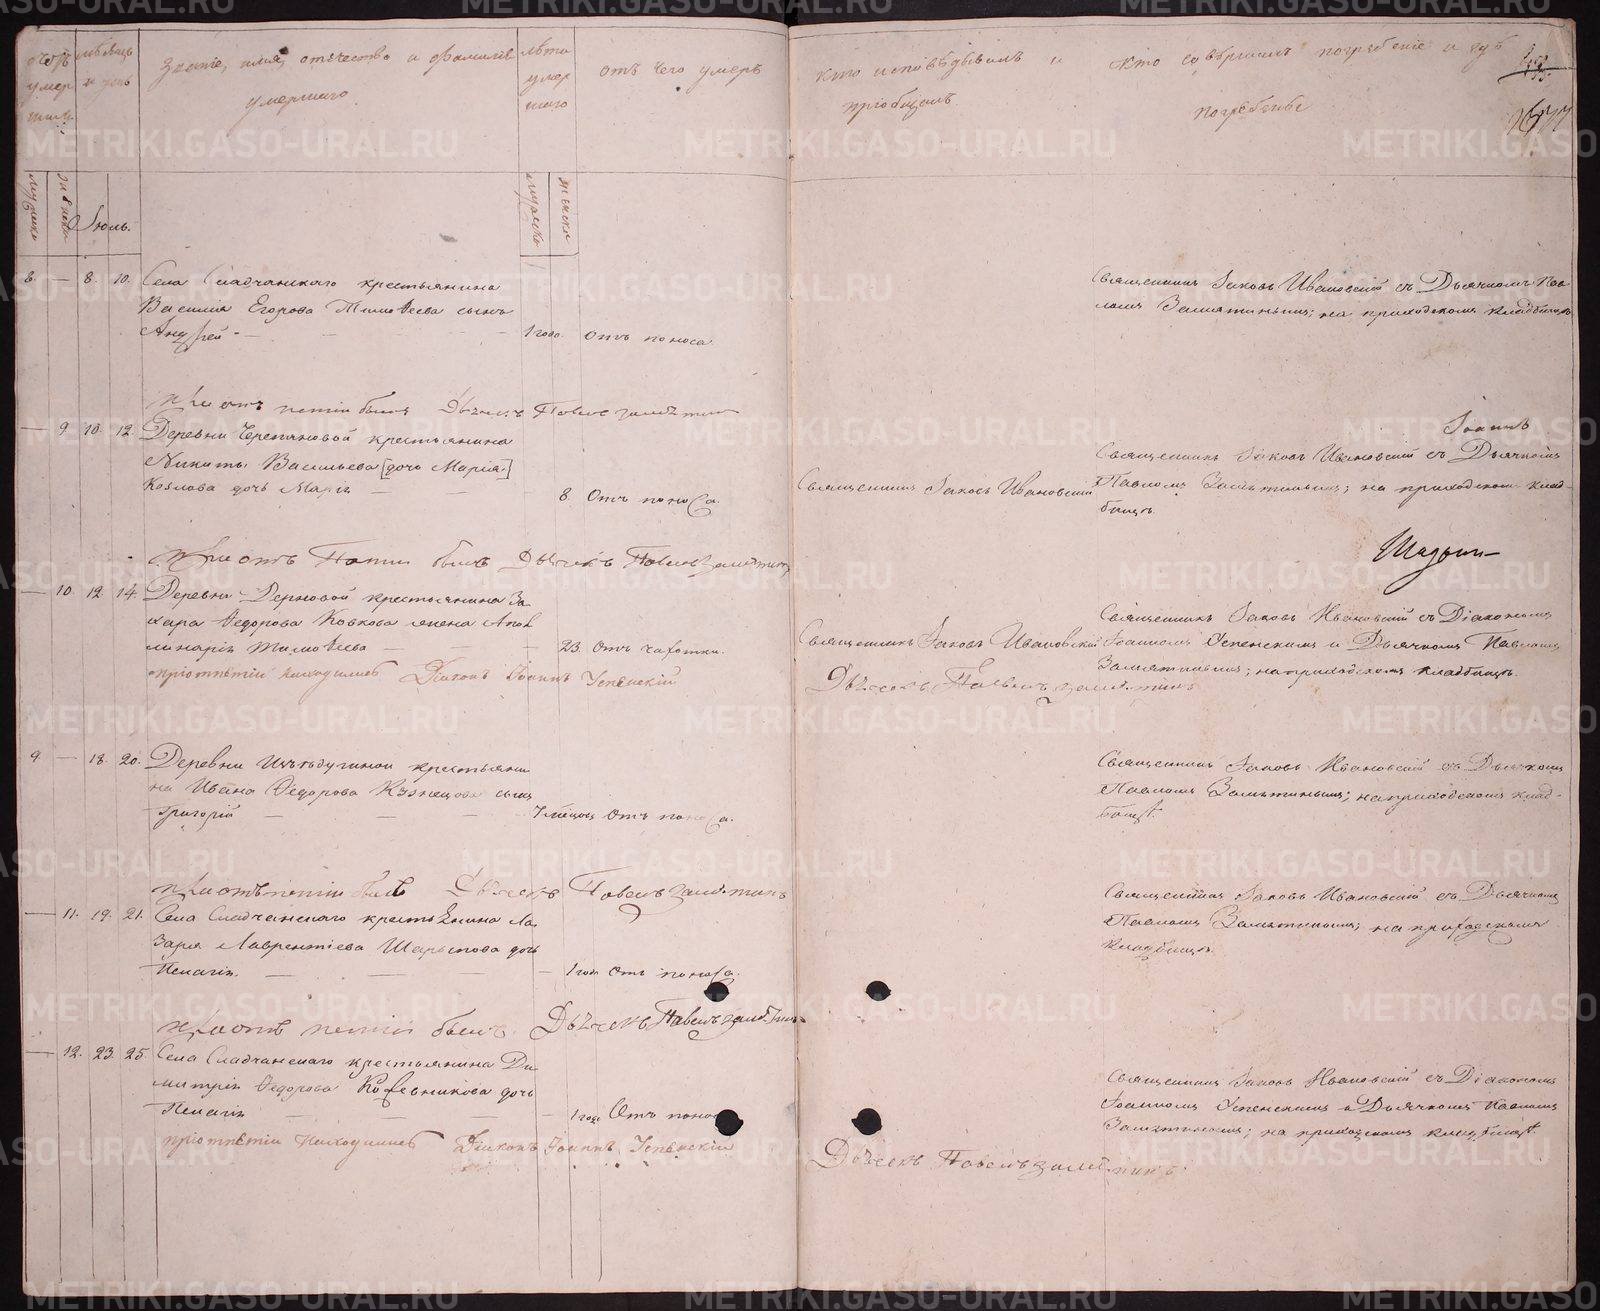 Званіе, имя, отчество и фамилія
умершаго.
лѣта
умер
шаго
отъ чего умеръ
кто исповѣдывалъ и
пріобщалъ.
кто совершилъ погребеніе и гдѣ
погребены
мужеска
женска
Іюль.
мужеска
женска
8. — 8. 10. Села Сладчанскаго крестьянина
Василія Егорова Тимоѳеева сынъ
Андрей — — — 1 годъ. отъ поноса.
Священникъ Іаковъ Ивановскій съ Дьячкомъ Пав
ломъ Замятинымъ; на приходскомъ кладбищѣ
При отъ петіи былъ Дьячекъ Павелъ
— 9. 10. 12. Деревни Черепановой крестьянина
Никиты Васильева [дочь Марія.]
Козлова дочь Марія — — 8. Отъ поноса.
Священникъ Іаковъ Ивановскій
Іоаннъ
Священникъ Іаковъ Ивановскій съ Дьячкомъ
Павломъ Замятинымъ; на приходскомъ клад-
бищѣ.
При отъ былъ Дьячекъ Павелъ
— 10. 12. 14. Деревни крестьянина За-
хара Ѳедорова жена Апол
линарія Тимоѳеева — — 23. Отъ чахотки.
Священникъ Іаковъ Ивановскій
Священникъ Іаковъ Ивановскій съ Діакономъ
Іоанномъ Успенскимъ и Дьячкомъ Павломъ
Замятинымъ; на приходскомъ кладбищѣ.
при отпѣтіи находился Діаконъ Іоаннъ Успенскій
Дьячекъ Павелъ
9. — 18. 20. Деревни крестьяни
на Ивана Ѳедорова Кузнецова сынъ
Григорій — — — 7 мѣсяцовъ Отъ поноса.
Священникъ Іаковъ Ивановскій съ Дьячкомъ
Павломъ Замятинымъ; на приходскомъ клад-
бищѣ.
При отпѣтіи былъ Дьячекъ Павелъ
— 11. 19. 21. Села Сладчанскаго крестьянина Ла-
заря Лаврентіева Шарыпова дочь
Пелагія. — — — 1 годъ Отъ поноса.
Священникъ Іаковъ Ивановскій съ Дьячкомъ
Павломъ Замятинымъ; на приходскомъ
кладбищѣ.
При отъ петіи былъ Дьячекъ Павелъ
— 12. 23. 25. Села Сладчанскаго крестьянина Ди
митрія Ѳедорова Кожевникова дочь
Пелагія — — — 1 годъ Отъ поноса
Священникъ Іаковъ Ивановскій съ Діакономъ
Іоанномъ Успенскимъ и Дьячкомъ Павломъ
Замятинымъ; на приходскомъ кладбищѣ.
при отпѣтіи находился Діаконъ Іоаннъ Успенскій
Дьячекъ Павелъ
METRIKI.GASO-URAL.RU